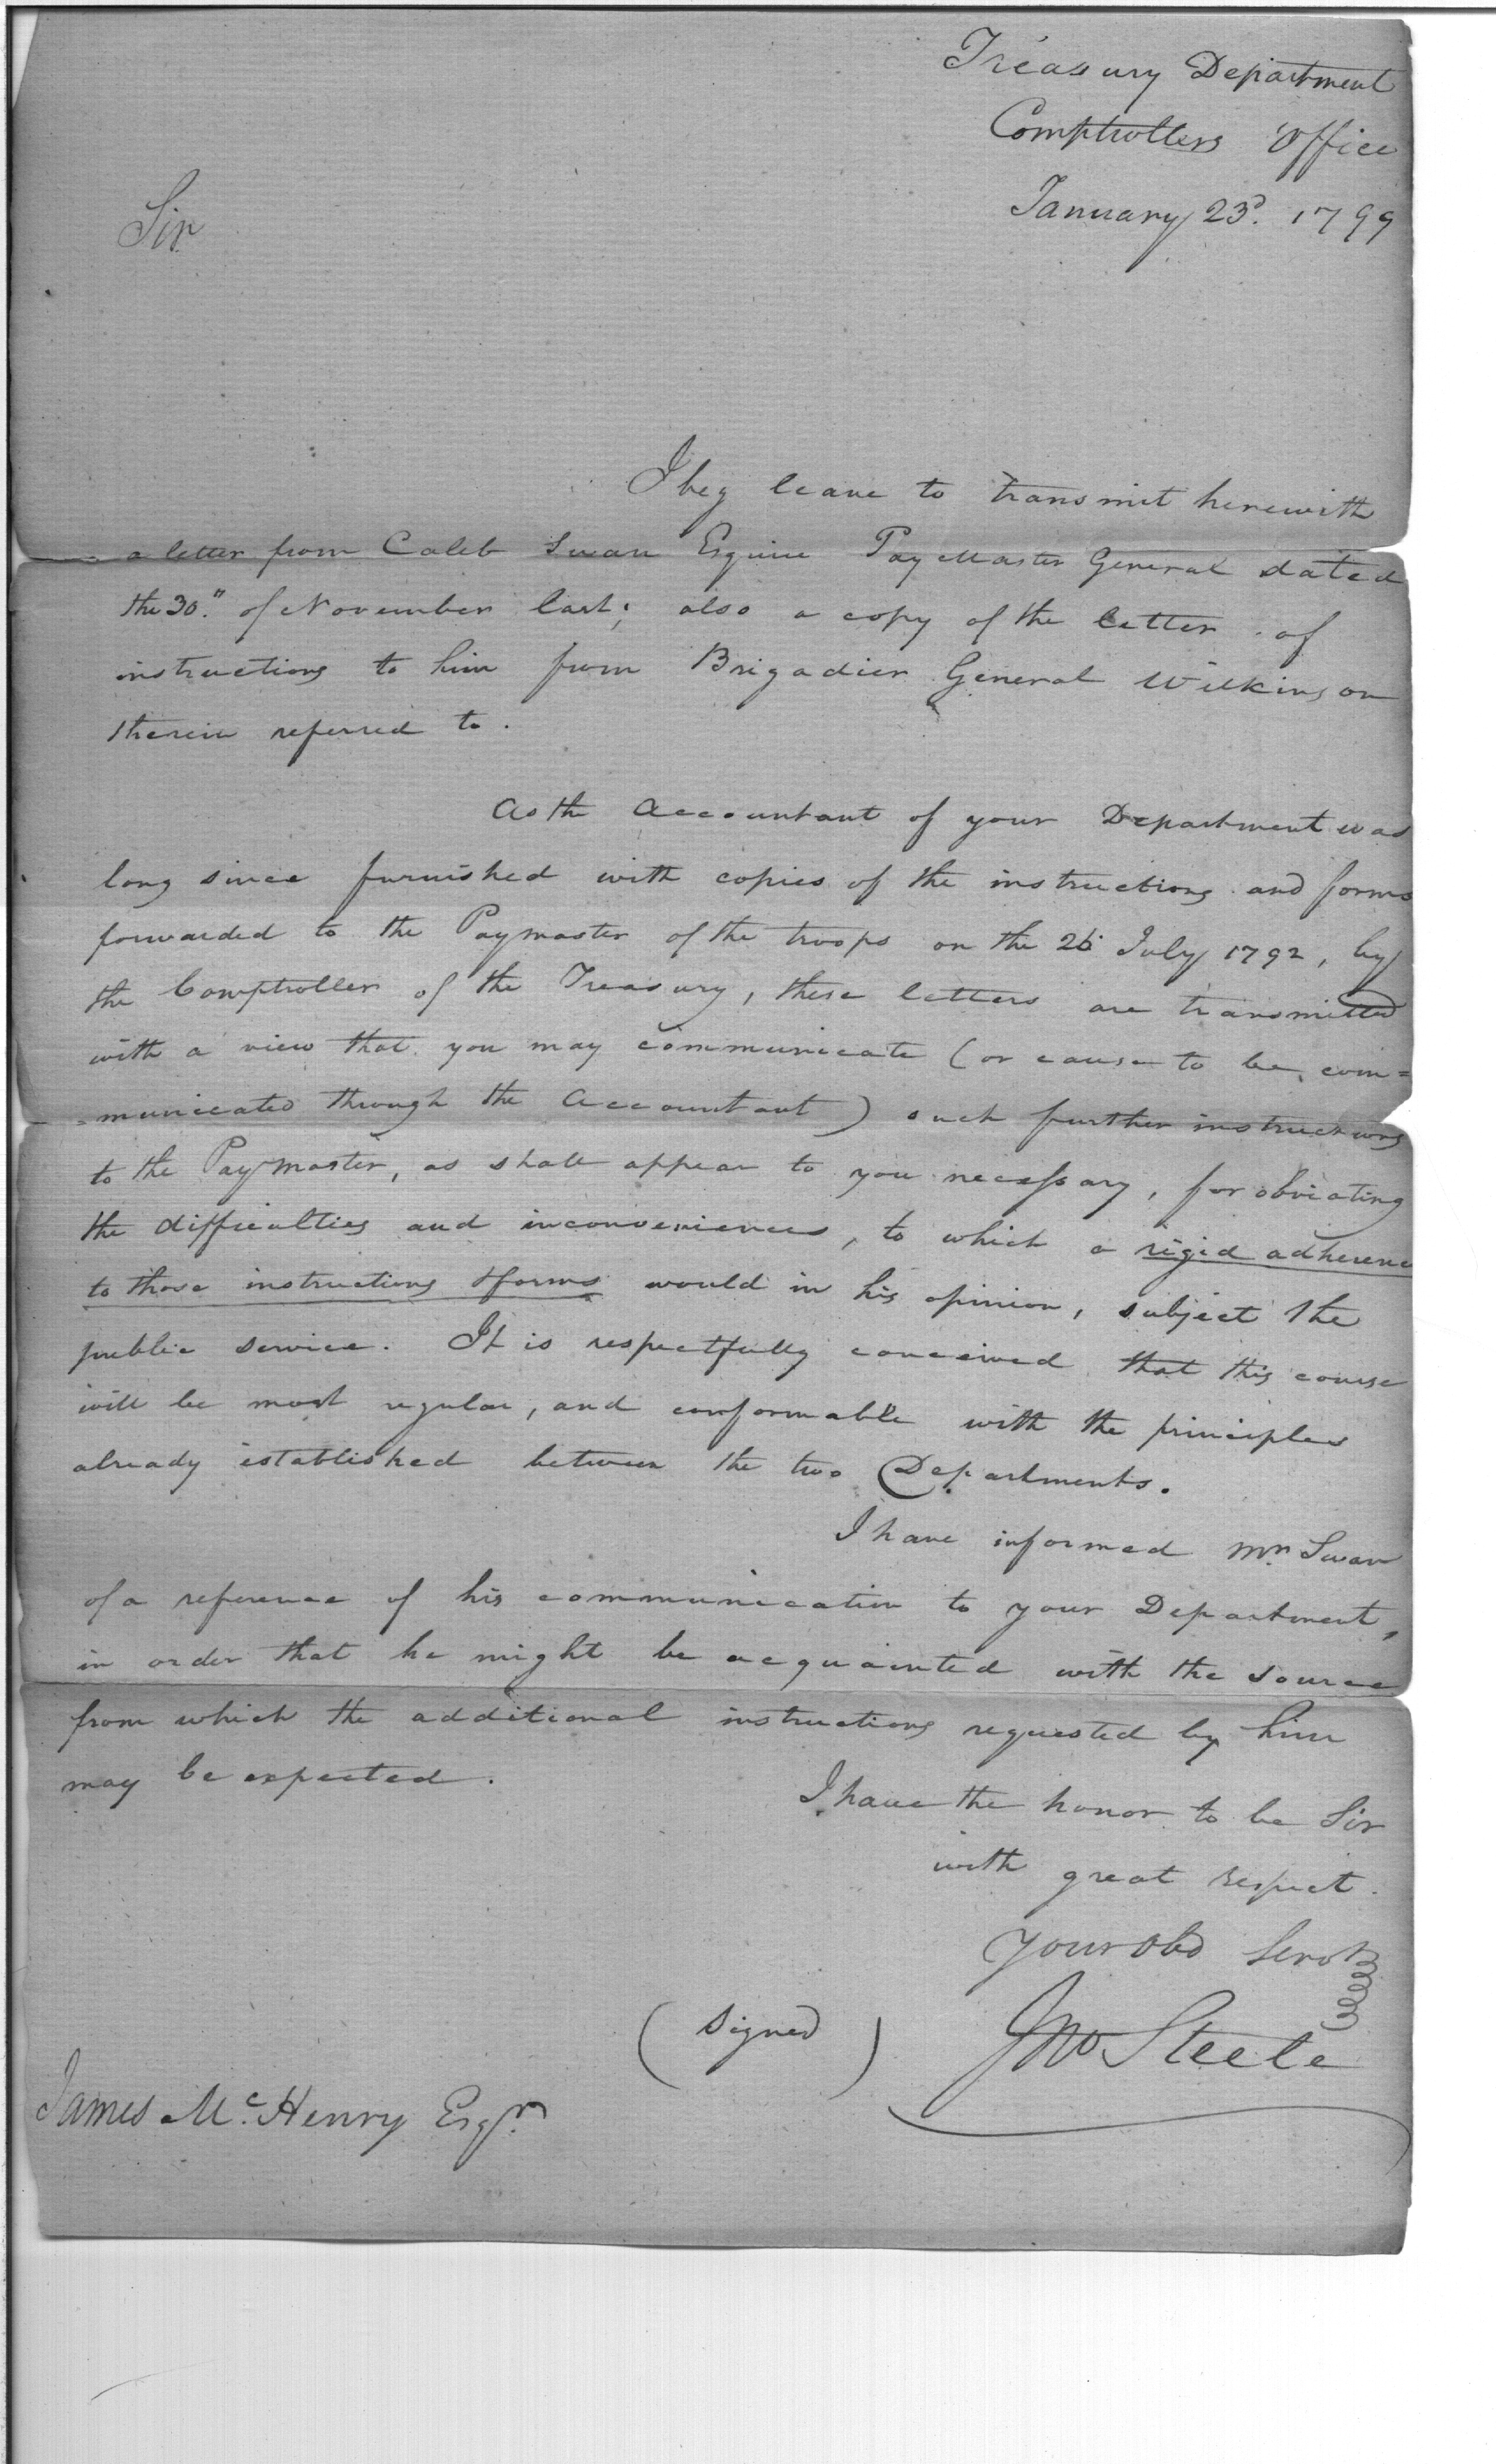 Treasury Department
Comptrollers Office
January 23d. 1799
Sir
I beg leave to transmit herewith
a letter from Caleb Swan Esquire PayMaster General dated
the 30." of November last; also a copy of the letter of
instructions to him from Brigadier General Wilkinson
therein referred to.
As the Accountant of your Department was
long since furnished with copies of the instructions and forms
forwarded to the Paymaster of the troops on the 26 July 1792, by
the Comptroller of the Treasury, these letters are transmitted
with a view that you may communicate (or cause to be com=
=municated through the Accountant) such further instructions
to the PayMaster, as shall appear to you necessary, for obviating
the difficulties and inconveniences, to which a rigid adherence
to those instructions & forms would in his opinion, subject the
public service. It is respectfully conceived that this course
will be most regular, and conformable with the principles
already established between the two Departments.
I have informed Mr. Swan
of a reference of his communication to your Department,
in order that he might be acquainted with the source
from which the additional instructions requested by him
may be expected.
I have the honor to be Sir
with great respect.
your Obd Servt
(Signed) Jno Steele
James McHenry Esqr.